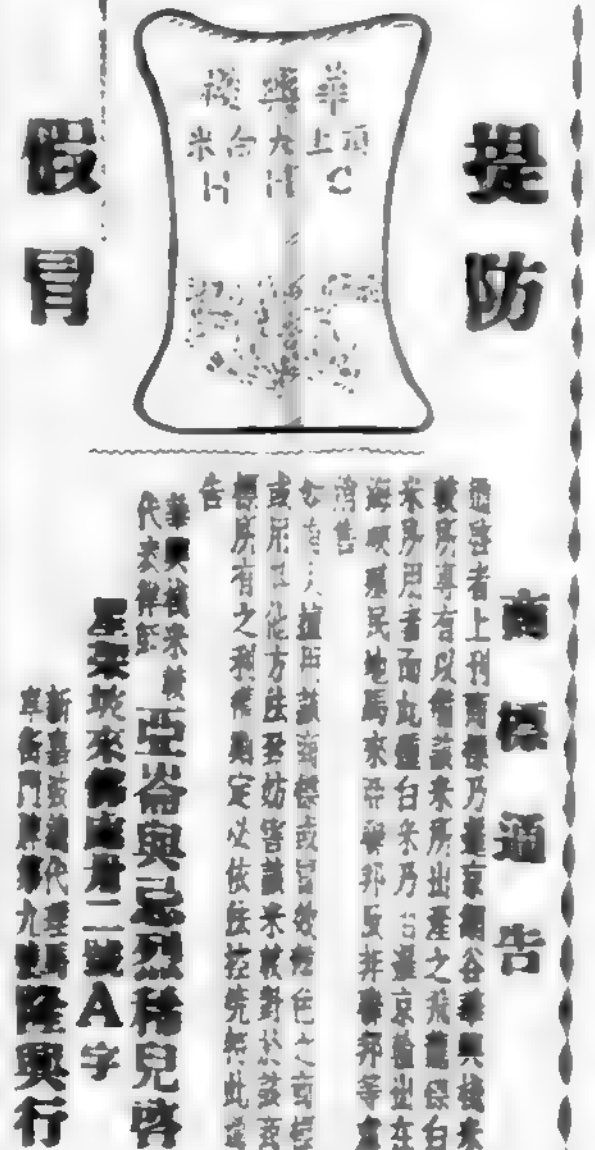 提防
假冒
華興棧
頂上大合米
C H H
商標通告
逕啓者上刊商標乃暹京 谷華興棧米
較房專有以 該米房出產之飛龍標白
米房用者面此種白米乃由暹京輸出在
海峽殖民地馬來亞聯邦及井聯邦等處
銷售
如有人擅用該商標或冒效 色之商標
或用其他方法妨害該米較對於該商
標所有之利權則定必依法控究特此通
告
華興棧米較
代表律師
亞崙與忌烈稀兒啓
星架坡來佛 君二號A字
新嘉坡總代理
牌 九號
隆興行